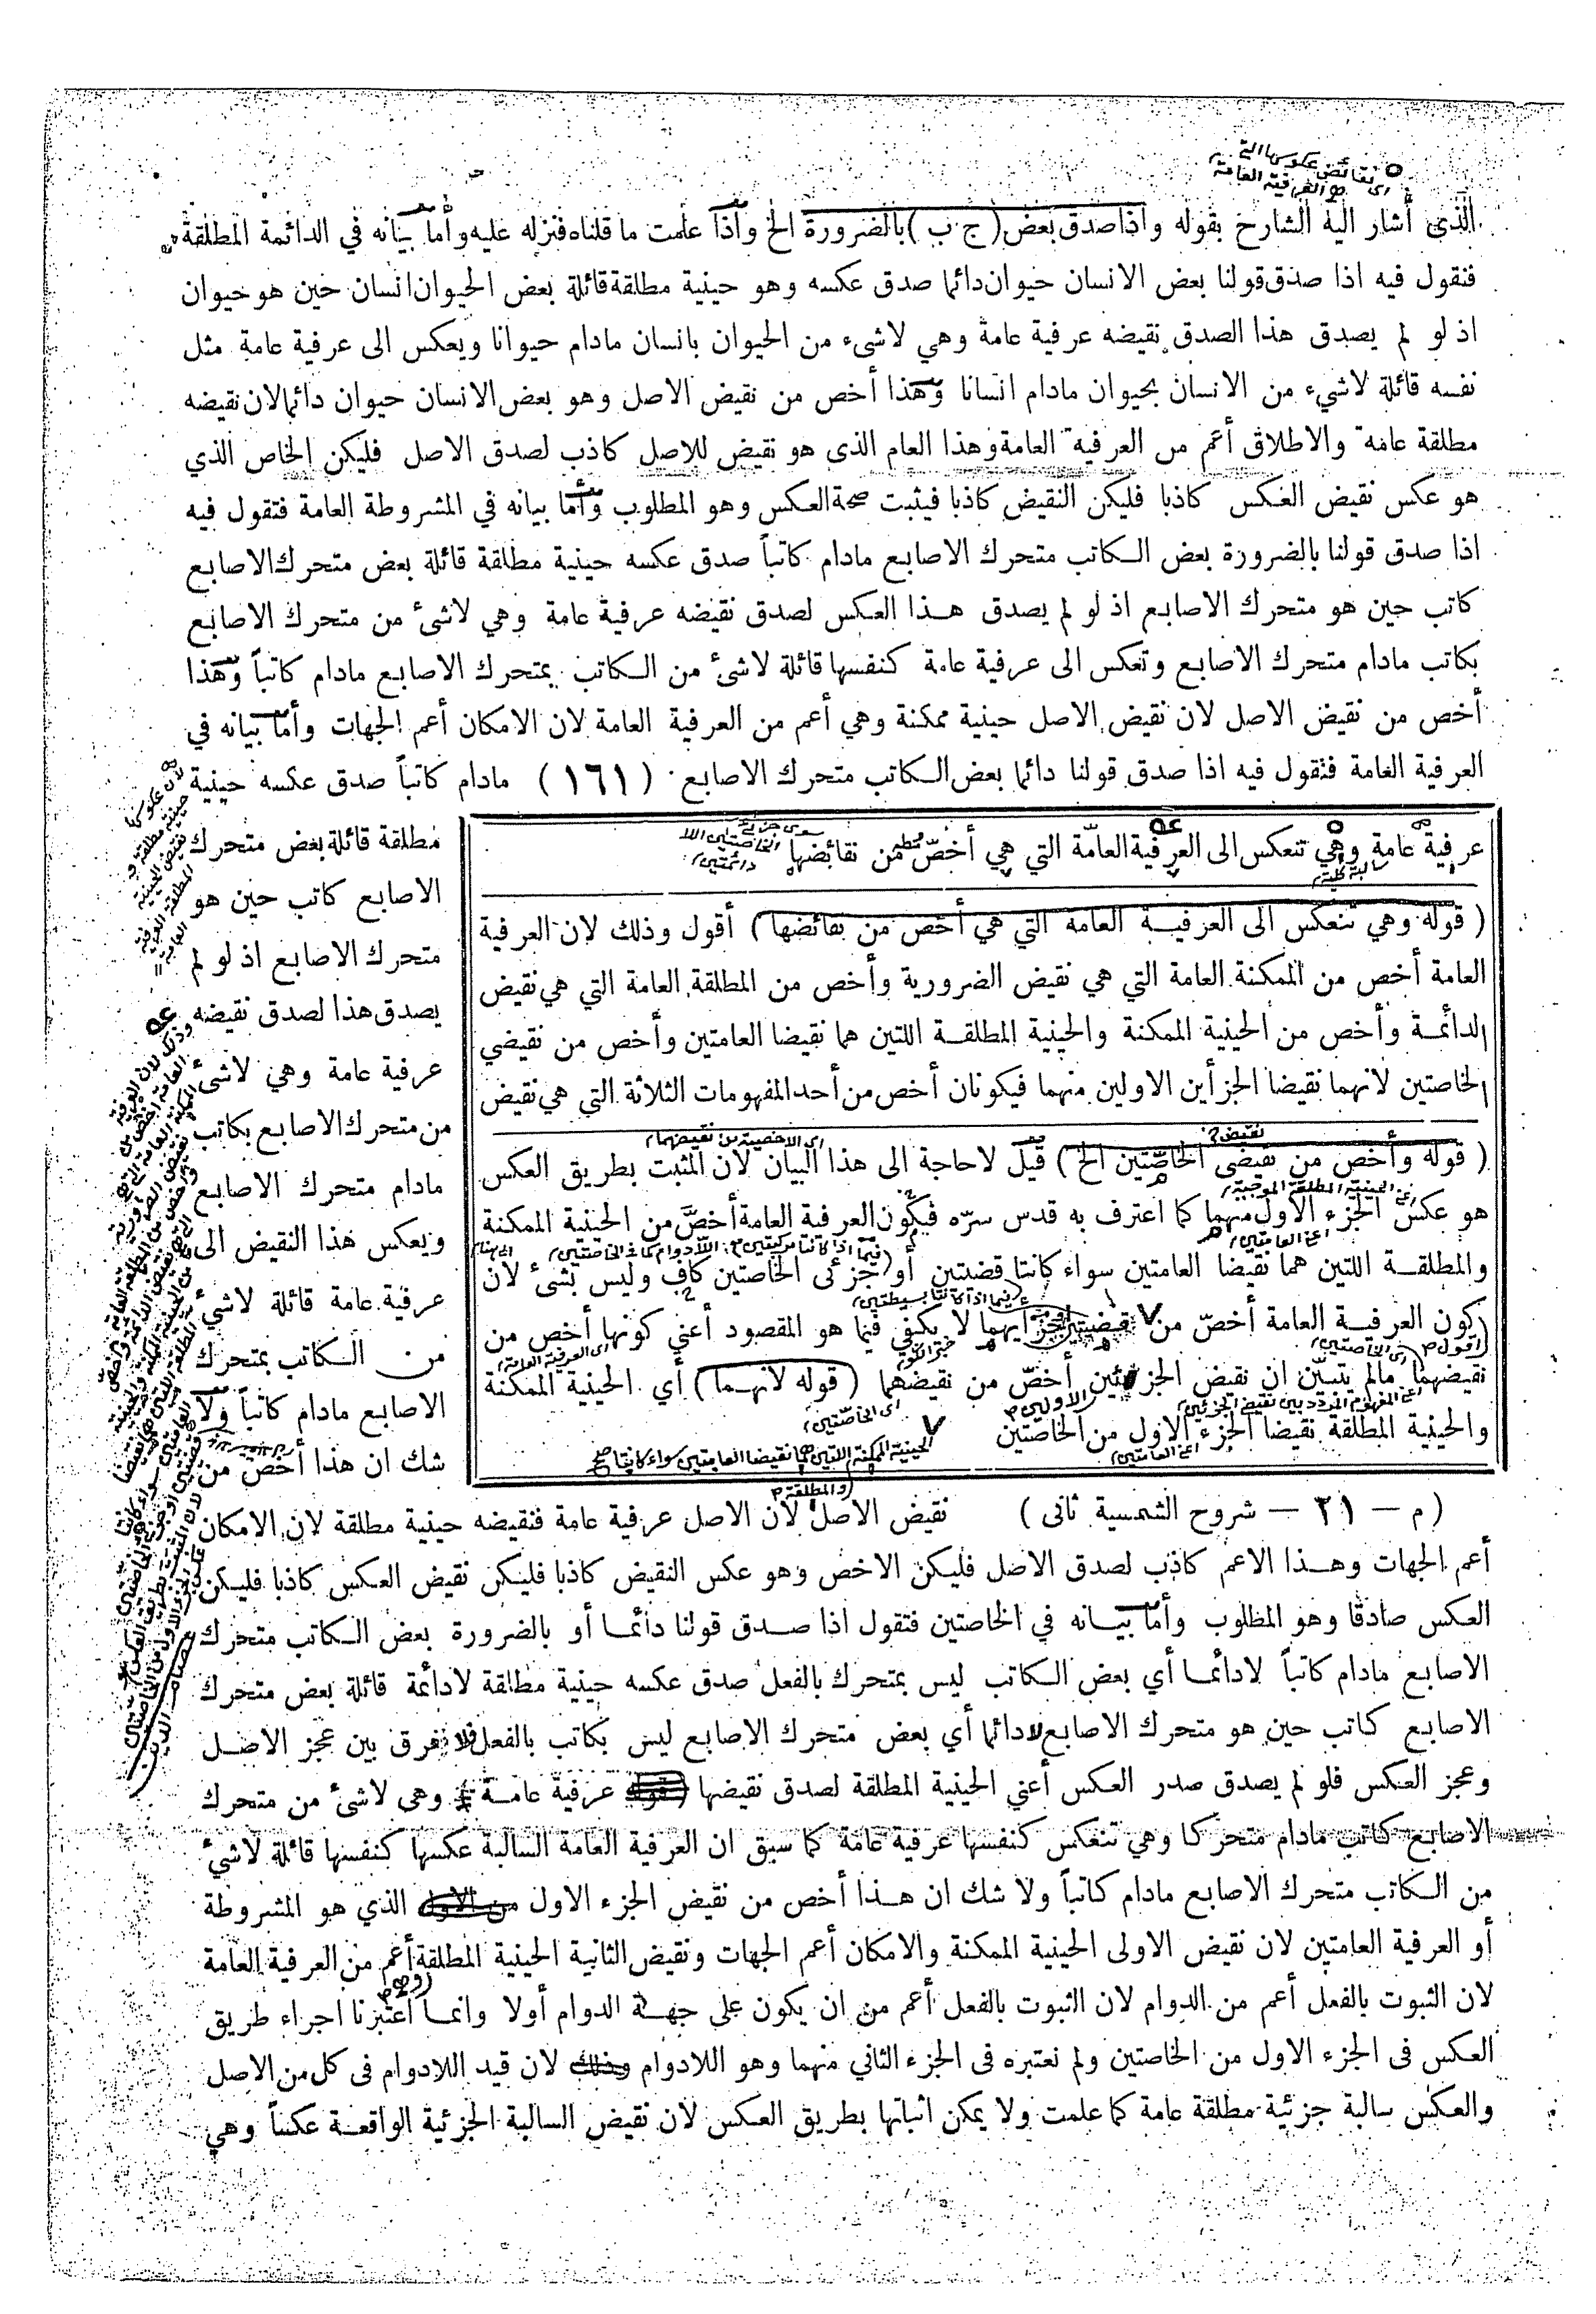 اى نقائض عكوسها التى
هو العرفية العامة
الذي أشار اليه الشارح بقوله واذا صدق بعض ( ج ب ) بالضرورة الخ واذا علمت ما قلناه فنزله عليه وأما بيانه في الدائمة المطلقة
فنقول فيه اذا صدق قولنا بعض الانسان حيوان دائما صدق عكسه وهو حينية مطلقة قائلة بعض الحيوان انسان حين هو حيوان
اذ لو لم يصدق هذا الصدق نقيضه عرفية عامة وهي لاشىء من الحيوان بانسان مادام حيوانا ويعكس الى عرفية عامة مثل
نفسه قائلة لاشيء من الانسان بحيوان مادام انسانا وهذا أخص من نقيض الاصل وهو بعض الانسان حيوان دائما لان نقيضه
مطلقة عامة والاطلاق أعم من العرفية العامة وهذا العام الذى هو نقيض للاصل كاذب لصدق الاصل فليكن الخاص الذي
هو عكس نقيض العكس كاذبا فليكن النقيض كاذبا فيثبت صحة العكس وهو المطلوب وأما بيانه في المشروطة العامة فتقول فيه
اذا صدق قولنا بالضرورة بعض الكاتب متحرك الاصابع مادام كاتباً صدق عكسه حينية مطلقة قائلة بعض متحرك الاصابع
كاتب حين هو متحرك الاصابع اذ لو لم يصدق هذا العكس لصدق نقيضه عرفية عامة وهي لاشئ من متحرك الاصابع
بكاتب مادام متحرك الاصابع وتعكس الى عرفية عامة كنفسها قائلة لاشئ من الكاتب بمتحرك الاصابع مادام كاتباً وهذا
أخص من نقيض الاصل لان نقيض الاصل حينية ممكنة وهي أعم من العرفية العامة لان الامكان أعم الجهات وأما بيانه في
العرفية العامة فنقول فيه اذا صدق قولنا دائما بعض الكاتب متحرك الاصابع ( ١٦١ ) مادام كاتباً صدق عكسه حينية
مطلقة قائلة بعض متحرك
الاصابع كاتب حين هو
متحرك الاصابع اذ لو لم
يصدق هذا لصدق نقيضه
عرفية عامة وهي لاشئ
من متحرك الاصابع بكاتب
مادام متحرك الاصابع
ويعكس هذا النقيض الى
عرفية عامة قائلة لاشئ
من الكاتب بمتحرك
الاصابع مادام كاتباً ولا
شك ان هذا أخص من
عرفية عامة وهي تنعكس الى العرفية العامّة التي هي أخصّ من نقائضها
سالبة كلية
( قوله وهي تنعكس الى العرفية العامة التي هي أخص من نقائضها ) أقول وذلك لان العرفية
العامة أخص من الممكنة العامة التي هي نقيض الضرورية وأخص من المطلقة العامة التي هي نقيض
الدائمة وأخص من الحينية الممكنة والحينية المطلقة اللتين هما نقيضا العامتين وأخص من نقيضي
الخاصتين لانهما نقيضا الجزأين الاولين منهما فيكونان أخص من أحد المفهومات الثلاثة التي هي نقيض
اى الاخصية من نقيضهما
( قوله وأخص من نقيضى الخاصّتين الخ ) قيل لاحاجة الى هذا البيان لان المثبت بطريق العكس
اعنى الحينية المطلقة الموجبة
هو عكس الجزء الاول منهما كما اعترف به قدس سرّه فيكون العرفية العامة أخصَّ من الحينية الممكنة
اعنى العامتين
والمطلقة اللتين هما نقيضا العامتين سواء كانتا قضيتين أو جزئى الخاصتين كاف وليس بشئ لان
فيما اذا كانتا بسيطتين
كون العرفية العامة أخصّ من لا يكفي فيما هو المقصود أعني كونها أخص من
اى الخاصتين
اى العرفية العامة
نقيضهما مالم يتبيّن ان نقيض الجزئين أخصّ من نقيضهما ( قوله لانهما ) أي الحينية الممكنة
اعنى المفهوم المردد بين نقيض الجزئين
الاولين
اى الخاصّتين
والحينية المطلقة نقيضا الجزء الاول من الخاصتين
اعنى العامتين
الحينية الممكنة اللتين هما نقيضا العامتين سواء كانتا صح
والمطلقة
( م — ٢١ — شروح الشمسية ثانى ) نقيض الاصل لان الاصل عرفية عامة فنقيضه حينية مطلقة لان الامكان
أعم الجهات وهذا الاعم كاذب لصدق الاصل فليكن الاخص وهو عكس النقيض كاذبا فليكن نقيض العكس كاذبا فليكن
العكس صادقا وهو المطلوب وأما بيانه في الخاصتين فتقول اذا صدق قولنا دائما أو بالضرورة بعض الكاتب متحرك
الاصابع مادام كاتباً لادائما أي بعض الكاتب ليس بمتحرك بالفعل صدق عكسه حينية مطلقة لادائمة قائلة بعض متحرك
الاصابع كاتب حين هو متحرك الاصابع لادائما أي بعض متحرك الاصابع ليس بكاتب بالفعل فلا فرق بين عجز الاصل
وعجز العكس فلو لم يصدق صدر العكس أعني الحينية المطلقة لصدق نقيضها عرفية عامة وهى لاشئ من متحرك
الاصابع كاتب مادام متحركا وهي تنعكس كنفسها عرفية عامة كما سبق ان العرفية العامة السالبة عكسها كنفسها قائلة لاشئ
من الكاتب متحرك الاصابع مادام كاتباً ولا شك ان هذا أخص من نقيض الجزء الاول الذي هو المشروطة
أو العرفية العامتين لان نقيض الاولى الحينية الممكنة والامكان أعم الجهات ونقيض الثانية الحينية المطلقة أعم من العرفية العامة
لان الثبوت بالفعل أعم من الدوام لان الثبوت بالفعل أعم من ان يكون على جهة الدوام أولا وانما اعتبرنا اجراء طريق
العكس فى الجزء الاول من الخاصتين ولم نعتبره فى الجزء الثاني منهما وهو اللادوام لان قيد اللادوام فى كل من الاصل
والعكس سالبة جزئية مطلقة عامة كما علمت ولا يمكن اثباتها بطريق العكس لان نقيض السالبة الجزئية الواقعة عكساً وهي